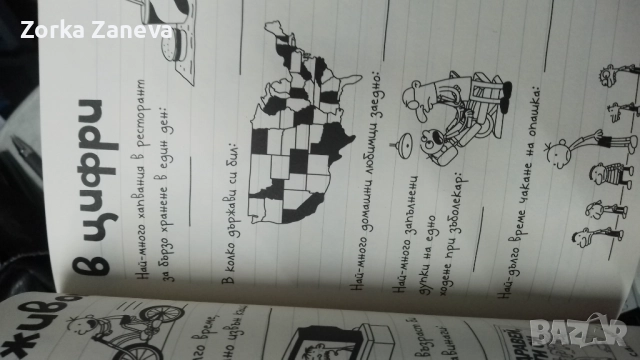 Zorka Zaneva
в цифри
Най-много хапвания в ресторант
за бързо хранене в един ден:
В колко държави си бил:
Най-много домашни любимци заедно:
Най-много запълнени
дупки на едно
ходене при зъболекар:
Най-дълго време чакане на опашка:
живо
време,
възраст в
bazar